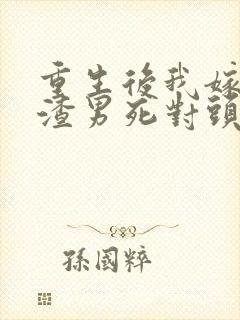 重生後我嫁
渣男死對頭
孫國粹